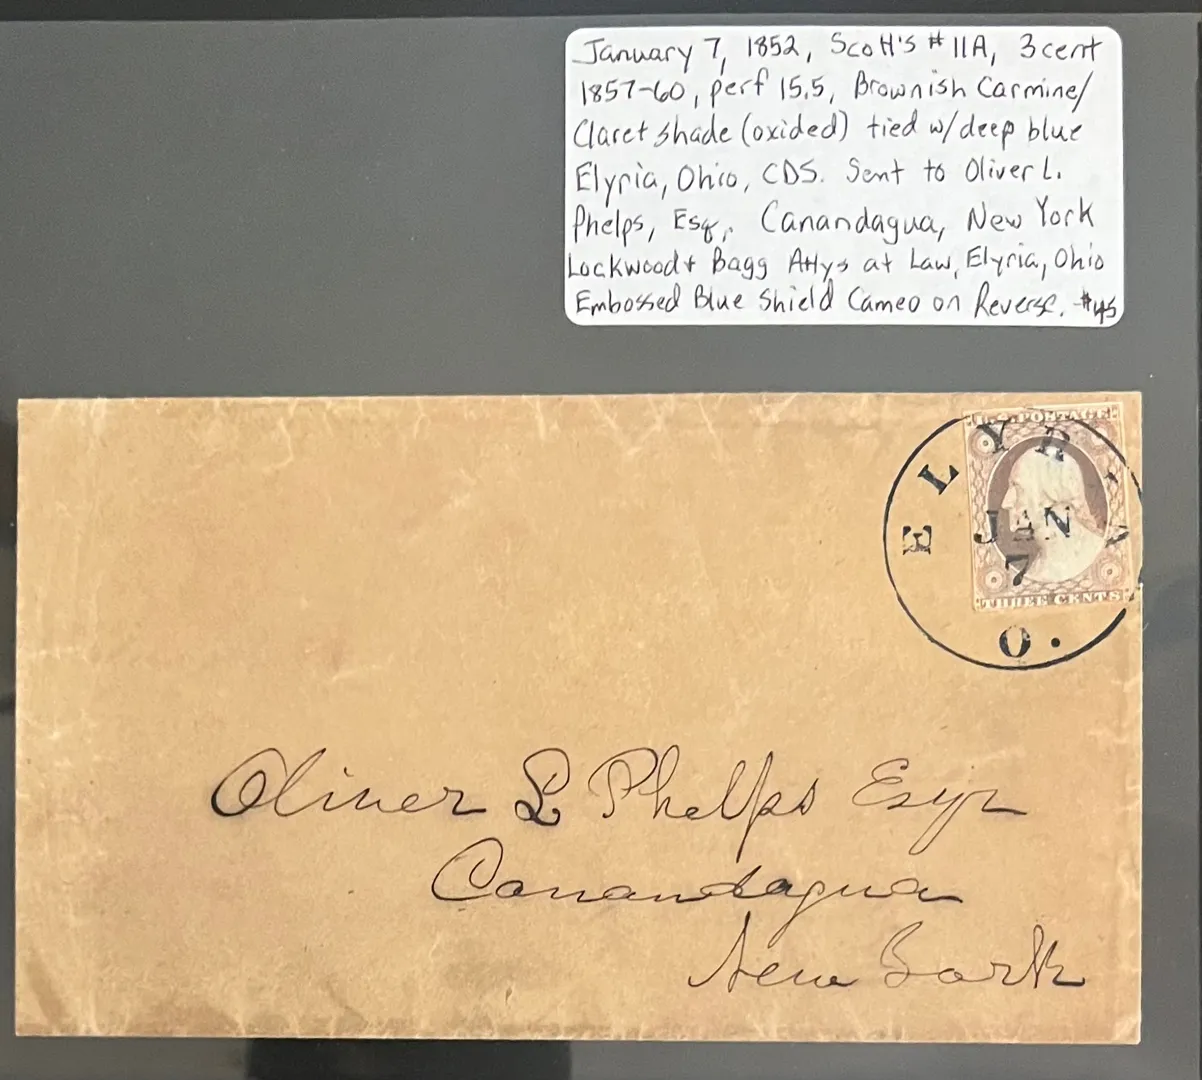 January 7, 1852, Scott's #11A, 3 cent
1857-60, perf 15.5, Brownish Carmine/
Claret shade (oxided) tied w/deep blue
Elyria, Ohio, CDS. Sent to Oliver L.
Phelps, Esq., Canandagua, New York
Lockwood & Bagg Attys at Law, Elyria, Ohio
Embossed Blue Shield Cameo on Reverse. #45
U.S. POSTAGE
ELYRIA
JAN
7
THREE CENTS
O.
Oliver L Phelps Esqr
Canandagua
New York